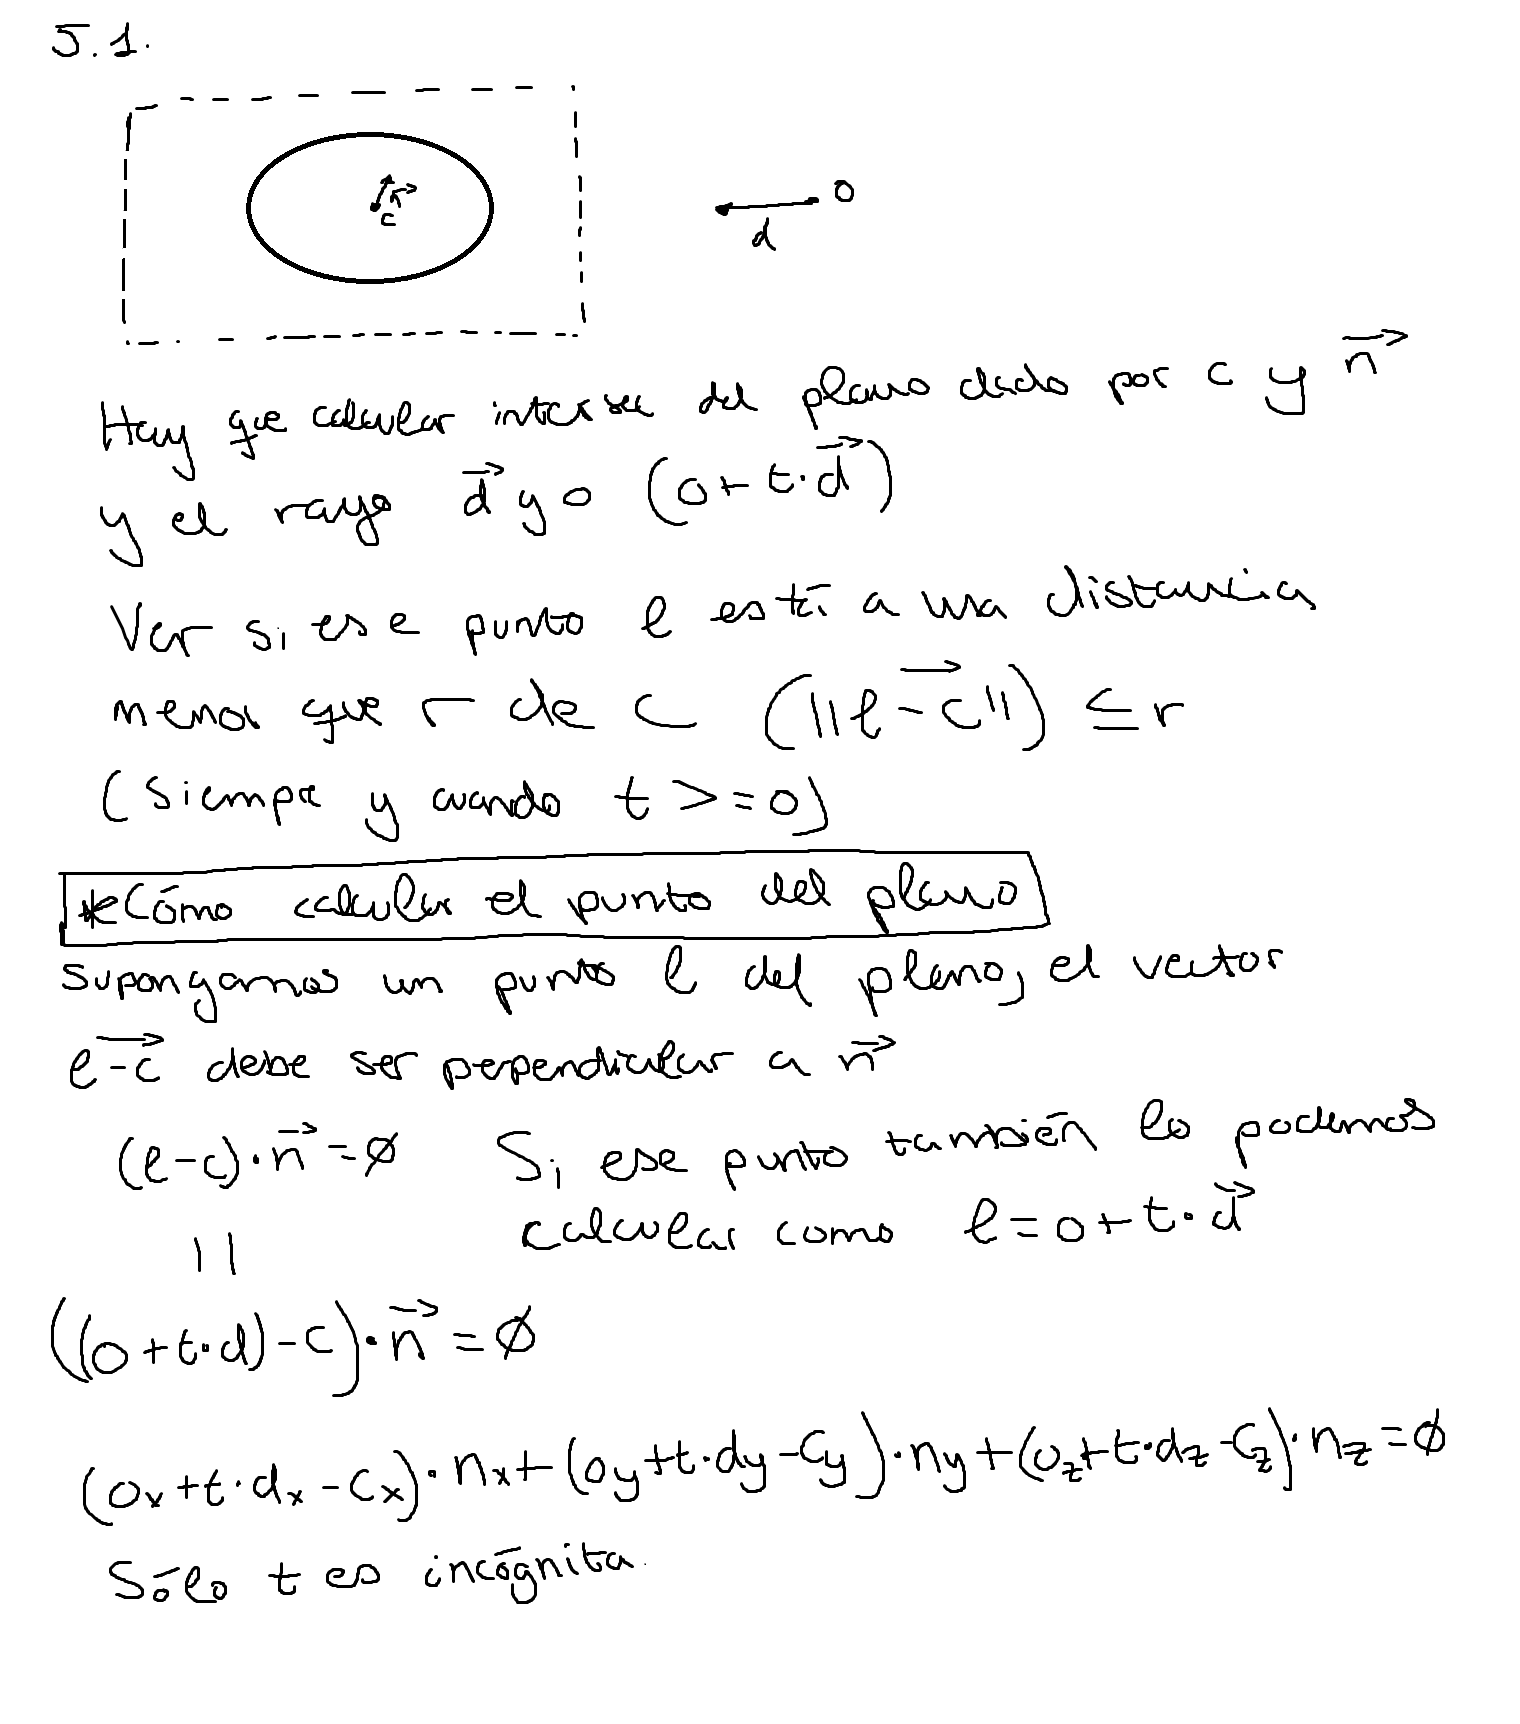 5.1.
n⃗
c
o
d
Hay que calcular intersec del plano dado por c y n⃗
y el rayo d⃗ y o (o + t·d⃗)
Ver si ese punto l está a una distancia
menor que r de c (||l-c||) ≤ r
(Siempre y cuando t >= 0)
*Cómo calcular el punto del plano
Supongamos un punto l del plano, el vector
l-c debe ser perpendicular a n⃗
(l-c)·n⃗ = ∅ Si ese punto también lo podemos
calcular como l = o + t·d⃗
||
((o + t·d) - c)·n⃗ = ∅
(ox + t·dx - cx)·nx + (oy + t·dy - cy)·ny + (oz + t·dz - cz)·nz = ∅
Sólo t es incógnita.